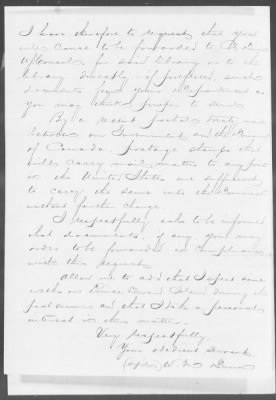 I have therefore to request that you
will cause to be forwarded to
for said library or to the
library directly if preferred such
documents from your Department as
you may think proper to send.
By a recent postal treaty made
between our Government and the
of Canada, postage stamps that
will carry mail matter to any
in the United States are sufficient
to carry the same into the
without further charge.
I respectfully ask to be informed
what documents, if any you may
order to be forwarded in compliance
with this request.
Allow me to add that I spent some
weeks on Prince Edward Island during the
past summer and that I take a personal
interest in this matter.
Very respectfully
Your obedient Servant
(Signed) W.